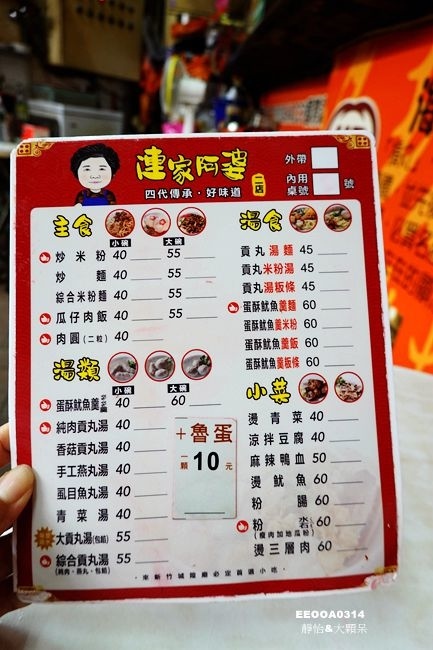 連家阿婆 二店
四代傳承・好味道
外帶
內用
桌號 號
主食
小碗 大碗
炒米粉 40 55
炒麵 40 55
綜合米粉麵 40 55
瓜仔肉飯 40 55
肉圓(二粒) 40
湯類
小碗 大碗
蛋酥魷魚羹 40 60
純肉貢丸湯 40
香菇貢丸湯 40
手工燕丸湯 40
虱目魚丸湯 40
青菜湯 40
大貢丸湯(包餡) 55
綜合貢丸湯 55
(純肉、燕丸、包餡)
十魯蛋
一顆 10 元
湯食
貢丸湯麵 45
貢丸米粉湯 45
貢丸湯板條 45
蛋酥魷魚羹麵 60
蛋酥魷魚羹米粉 60
蛋酥魷魚羹飯 60
蛋酥魷魚羹板條 60
小菜
燙青菜 40
涼拌豆腐 40
麻辣鴨血 50
燙魷魚 60
粉腸 60
粉 60
(瘦肉加地瓜粉)
燙三層肉 60
・來新竹城隍廟必定首選小吃・
EEOOA0314
靜怡&大顆呆